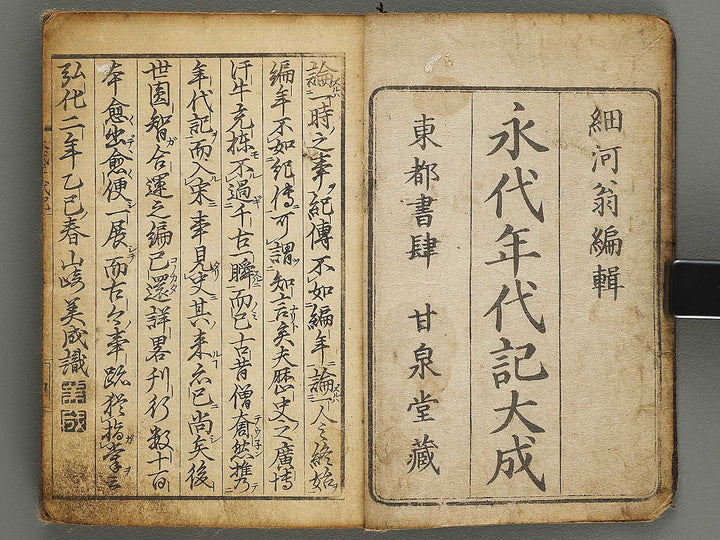 細河翁編輯
永代年代記大成
東都書肆 甘泉堂藏
論一時之事紀傳不如編年論一人之終始
編年不如紀傳可謂知言矣夫歷史之廣博
汗牛充棟不過千古一瞬而已古昔僧奝然携
年代記而入宋事見史其来亦已尚矣後
世圓智合運之編已還詳畧刊行数十百
本愈出愈便一展而古今事跡猶指掌云
弘化二年乙巳春 山崎美成識
美成